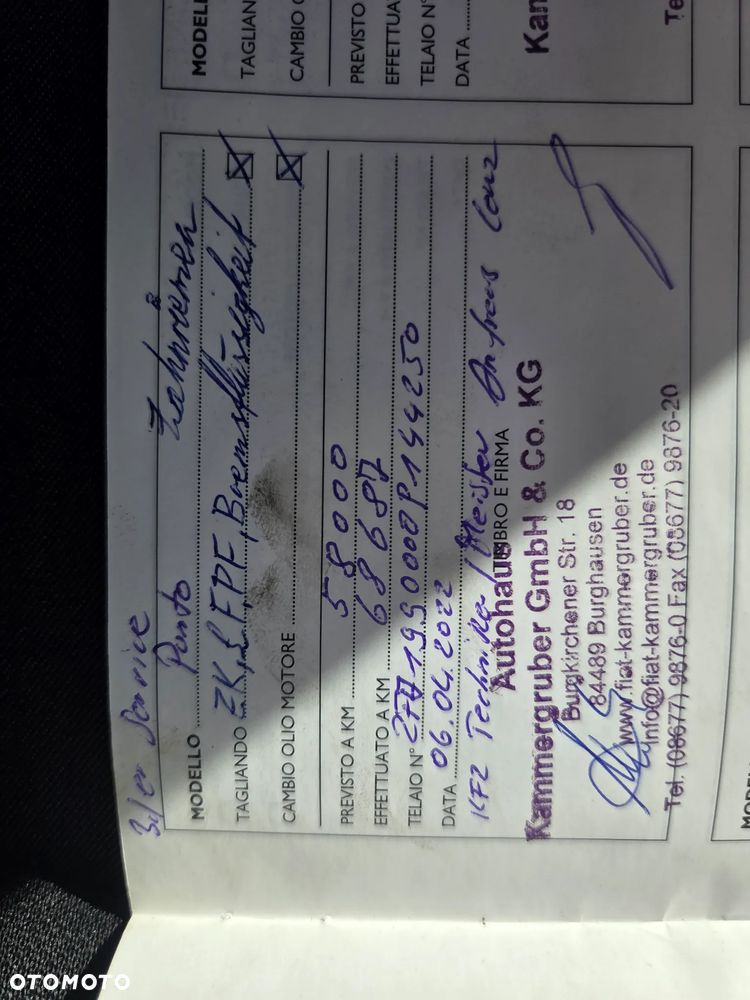 MODELL
TAGLIAN
CAMBIO O
PREVISTO
EFFETTUA
TELAIO N°
DATA
Kan
Te
3./er Service
Zahnriemen
MODELLO Punto
TAGLIANDO ZK, LF, PF, Bremsflüssigkeit
CAMBIO OLIO MOTORE
PREVISTO A KM 58000
EFFETTUATO A KM 68687
TELAIO N° ZFA1990000P144250
DATA 06.04.2022
KFZ Techniker / Meister Andreas
TIMBRO E FIRMA
Autohaus
Kammergruber GmbH & Co. KG
Burgkirchener Str. 18
84489 Burghausen
www.fiat-kammergruber.de
info@fiat-kammergruber.de
Tel. (08677) 9876-0 Fax (08677) 9876-20
OTOMOTO